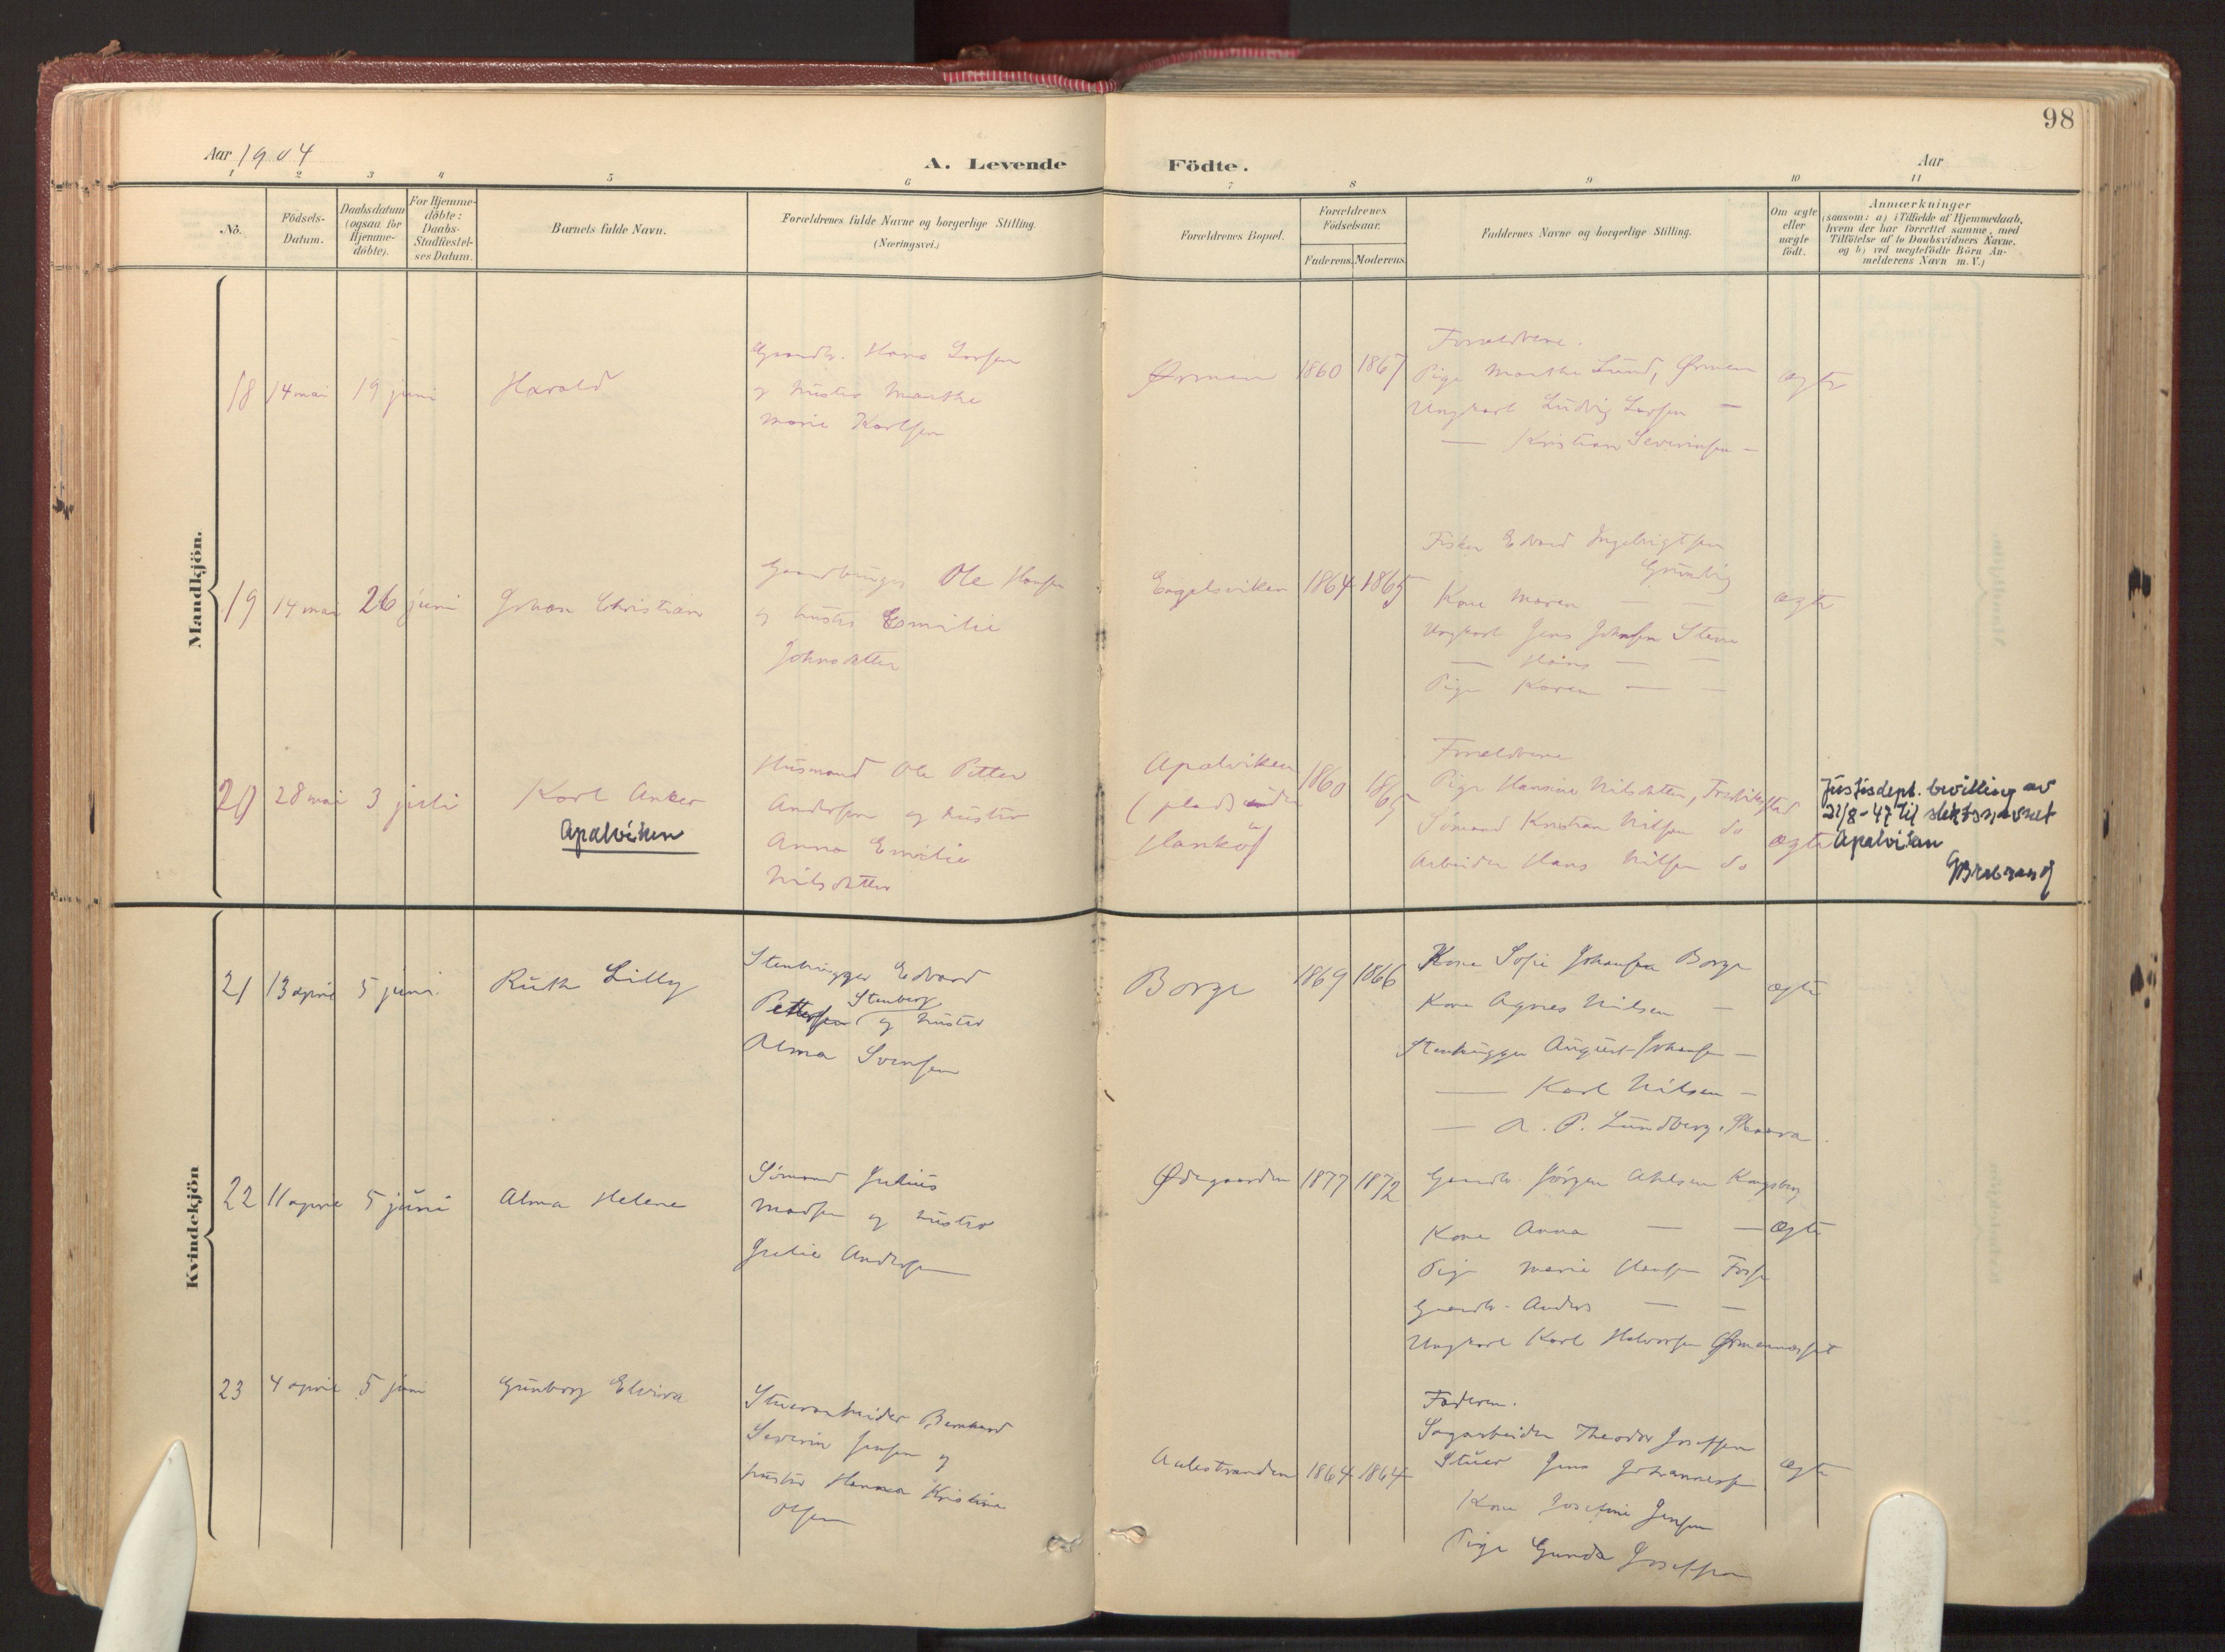 98
Aar 1904
A. Levende
Födte.
Aar
1
2
3
4
5
6
7
8
9
10
11
No.
Födsels-
Datum.
Daabsdatum
(ogsaa for
Hjemme-
döbte).
For Hjemme-
döbte:
Daabs-
Stadfæstel-
ses Datum.
Barnets fulde Navn.
Forældrenes fulde Navne og borgerlige Stilling.
(Næringsvei.)
Forældrenes Bopæl.
Forældrenes
Födselsaar.
Faderens.
Moderens.
Faddernes Navne og borgerlige Stilling.
Om ægte
eller
uægte
födt.
Anmærkninger
(saasom: a) i Tilfælde af Hjemmedaab,
hvem der har forrettet samme, med
Tilföielse af to Daabsvidners Navne.
og b) ved uægtefödte Börn An-
melderens Navn m. V.)
Mandkjön.
18
14 mai
19 juni
Harald
Gaardb. Hans Larsen
og hustru Marthe
Marie Karlsen
Ørmen
1860
1867
Forældrene.
Pige Marthe Lund, Ørmen
Ungkarl Ludvig Larsen —
— Kristian Severinsen —
ægte
19
14 mai
26 juni
Johan Christian
Gaardbruger Ole Hansen
og hustru Emilie
Johnsdatter
Engelsviken
1864
1865
Fisker Edvard Ingebrigtsen
Kone Maren — —
Ungkarl Jens Johnsen Stene
— Hans — —
Pige Karen — —
ægte
20
28 mai
3 juli
Karl Anker
Apalviken
Husmand Ole Petter
Andersen og hustru
Anna Emilie
Nilsdatter
Apalviken
(plads under
Hankø)
1860
1865
Forældrene
Pige Hansine Nilsdatter, Fredrikstad
Sømand Kristian Nilsen do
Arbeider Hans Nilsen do
ægte
Justisdept. bevilling av
21/8-47 til slektsnavnet
Apalviken
Kvindekjön
21
13 april
5 juni
Ruth Lilly
Stenhugger Edvard
Stenberg
Pettersen og hustru
Alma Svensen
Borge
1869
1866
Kone Sofie Johansen Borge
Kone Agnes Nilsen —
Stenhugger August Johansen —
— Karl Nilsen —
— A. P. Lundberg, Skaara.
ægte
22
11 april
5 juni
Alma Helene
Sømand Julius
Madsen og hustru
Julie Andersen
Ødegaarden
1877
1872
Gaardb. Jørgen Ahlsen Kongsberg
Kone Anna — —
Pige Marie Hansen
Gaardb. Anders — —
Ungkarl Karl Halvorsen
ægte
23
4 april
5 juni
Gunborg Elvira
Stuerarbeider Bernhard
Severin Jensen og
hustru Hanna Kristine
Olsen
Aalestranden
1864
1864
Faderen.
Sagarbeider Theodor Josefsen
Stuer Jens Johannessen
Kone Josefine Jensen
Pige Gunda Josefsen
ægte